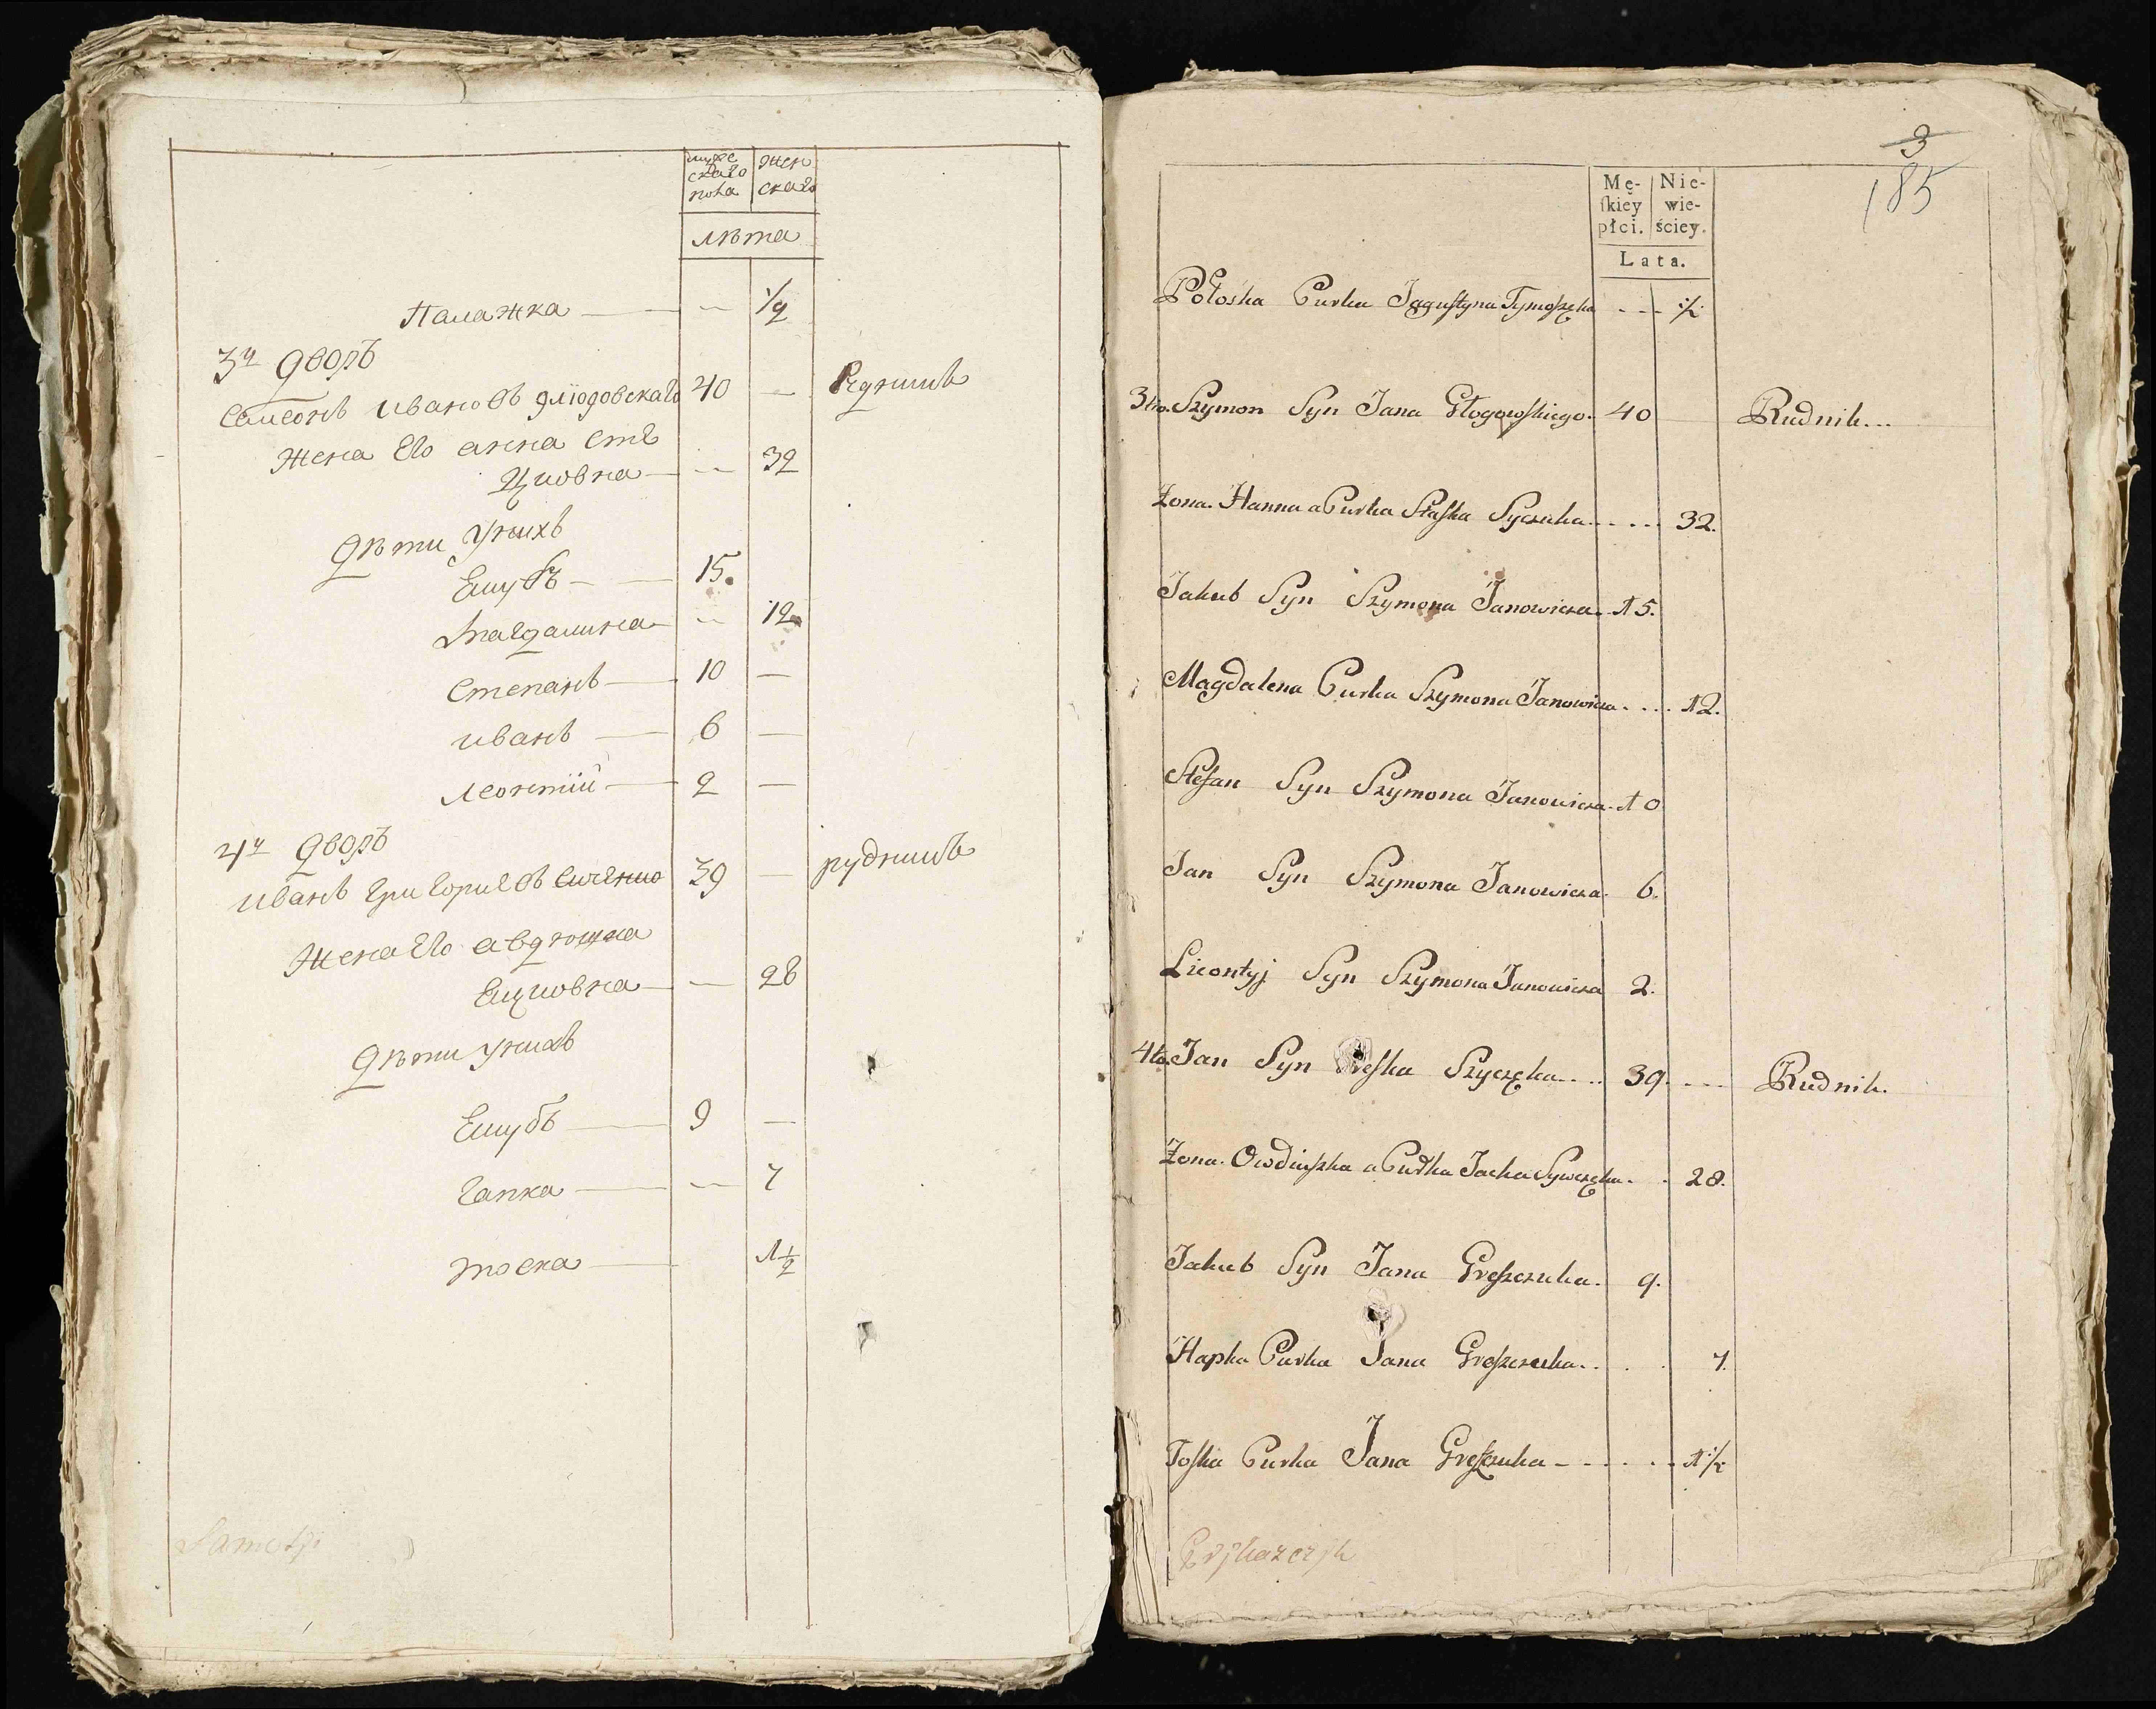 муже
скаго
пола
жен
скаго
лѣта
Палажка — — 1/2
3й дворъ
Семенъ Ивановъ 40 — Рудникъ
жена Его анна Сте
цковна — — 32
дѣти унихъ
Екубъ — 15.
Магдалина — — 12
Степанъ — 10 —
иванъ — 6 —
Леонтій — 2 —
4й дворъ
иванъ григориевъ 39 — рудникъ
жена Его авдюшка
Ецковна — — 28
дѣти унихъ
Екубъ — 9 —
гапка — — 7
тоска — 1 1/2
3
185
Mę-
ſkiey
płci.
Nie-
wie-
ściey.
Lata.
Połoska Curka Jaguſtyna Tymoſzęka - - - 1/2
3tio. Szymon Syn Jana Głogowſkiego. 40 Rudnik...
Żona. Hanna a Curka Staſka Syczuka..... 32.
Jakub Syn Szymona Janowicza. 15.
Magdalena Curka Szymona Janowicza.... 12.
Stefan Syn Szymona Janowicza. 10
Jan Syn Szymona Janowicza. 6.
Lieontyj Syn Szymona Janowicza 2.
4to. Jan Syn Szyczęka.... 39. --- Rudnik.
Żona. Owdiuſzka a Curka Jacka . . 28.
Jakub Syn Jana Greſzczuka. 9.
Hapka Curka Jana Greſzczuka. . . . 7.
Toſka Curka Jana Greſzczuka - - . . . 1 1/2